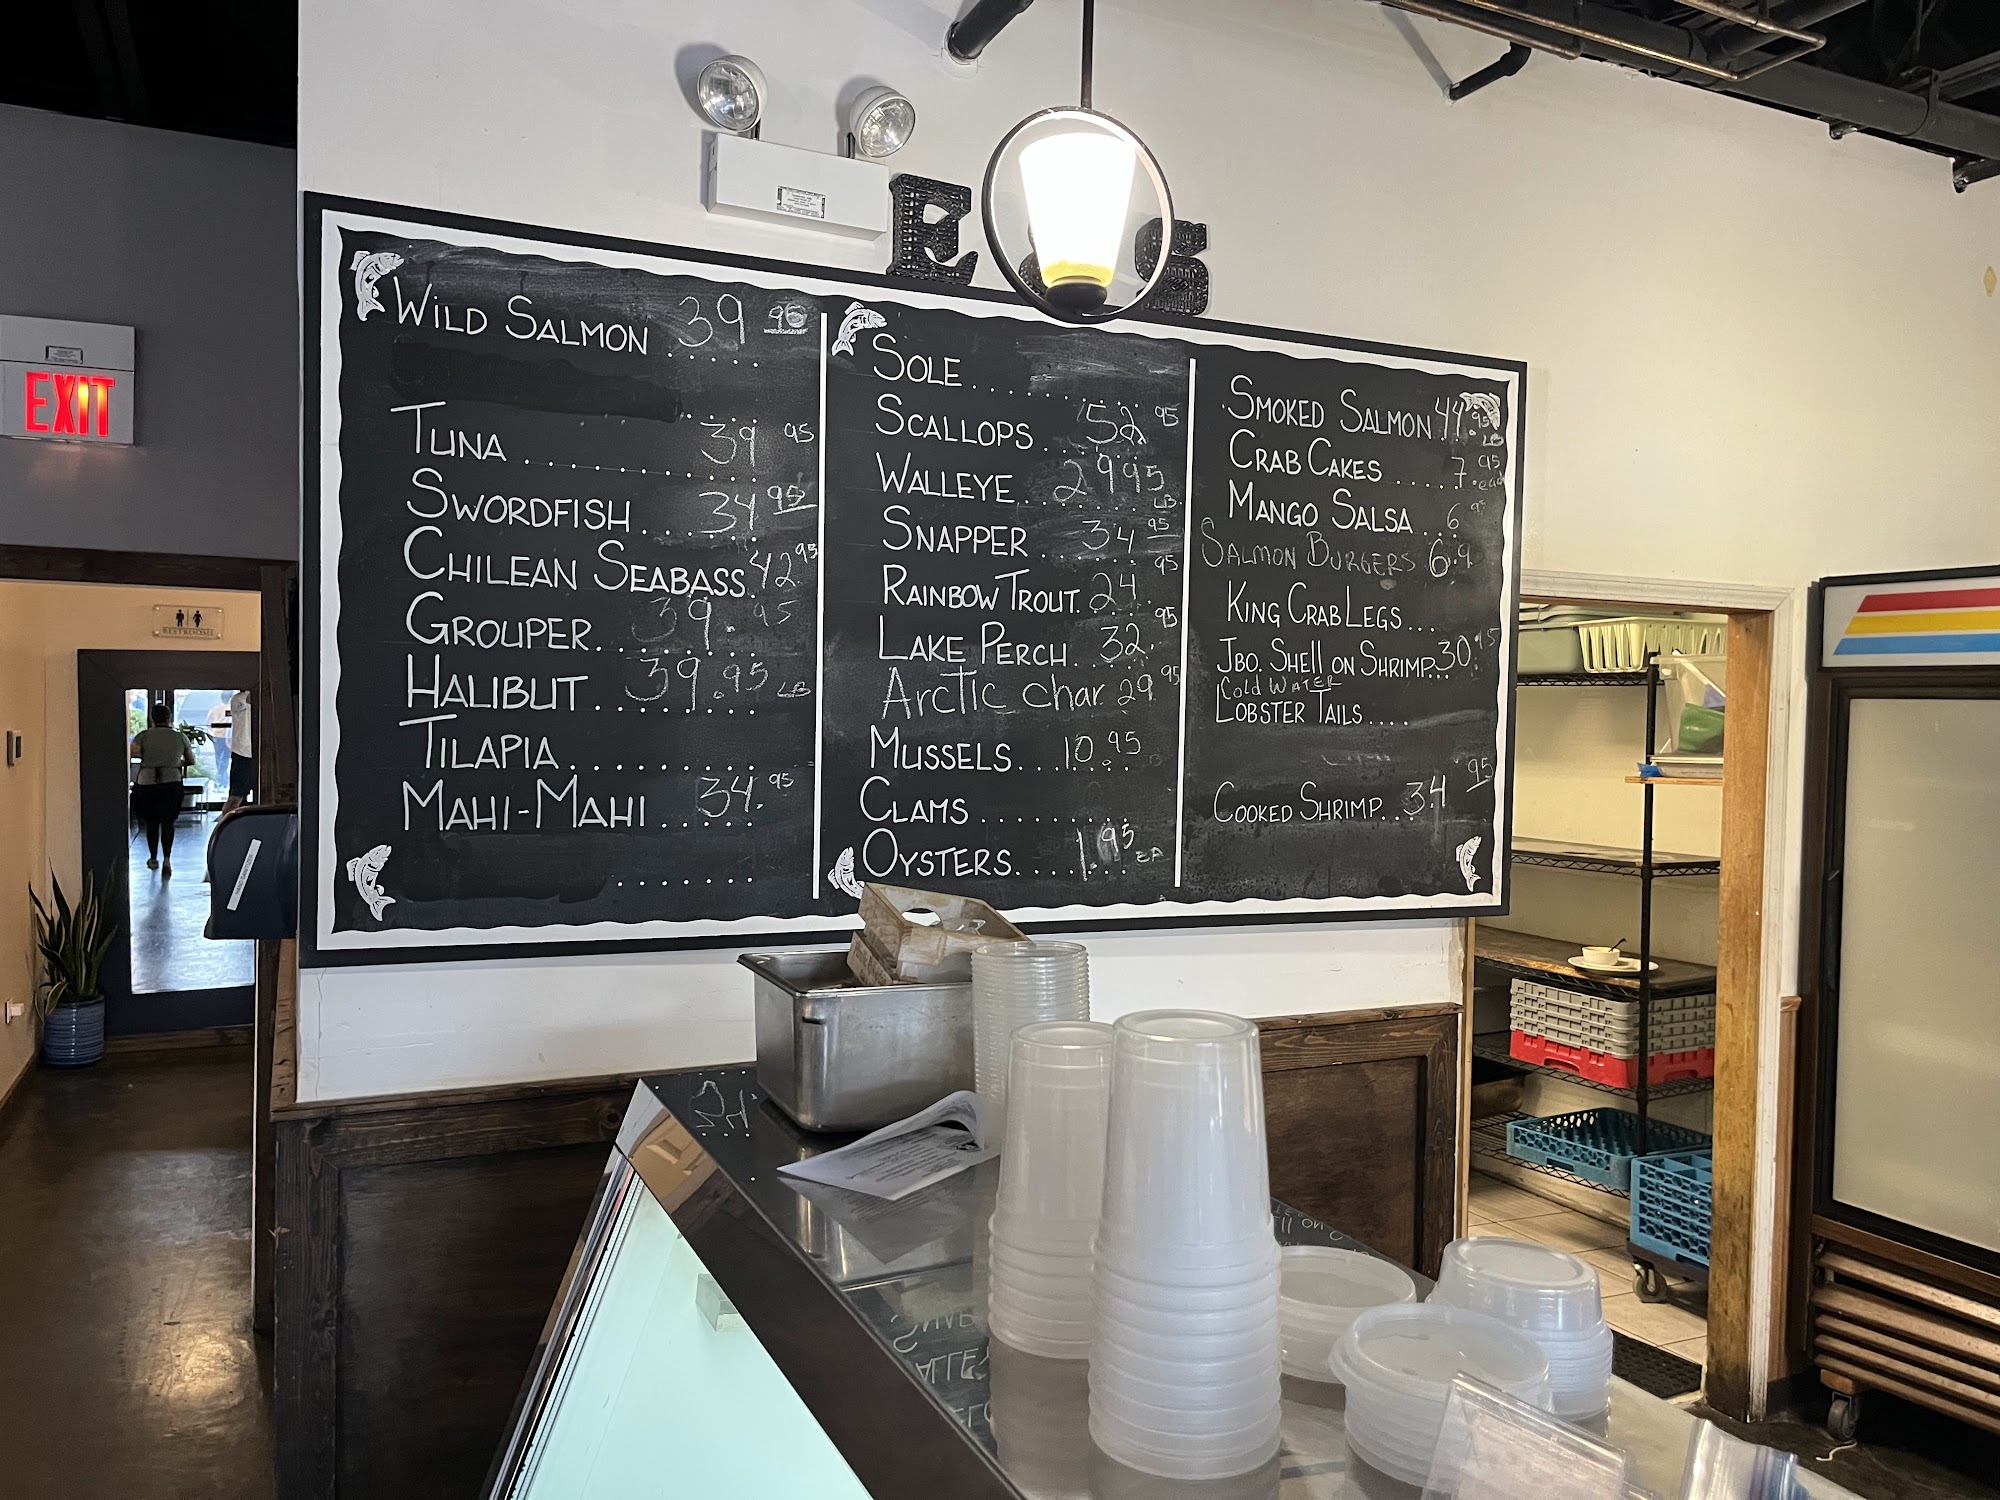 EXIT
RESTROOMS
E S
WILD SALMON 39 95 ....
.....
TUNA ......... 39 95
SWORDFISH ... 34 95
CHILEAN SEABASS. 42 95
GROUPER ........ 39.95
HALIBUT ........ 39.95 LB
TILAPIA .........
MAHI-MAHI ..... 34.95
.......
SOLE ...
SCALLOPS ... 52 95
WALLEYE .. 29 95 LB
SNAPPER ... 34 95
RAINBOW TROUT. 24 95
LAKE PERCH. 32. 95
Arctic char. 29 95
MUSSELS ... 10.95
CLAMS .........
OYSTERS .... 1.95 EA
SMOKED SALMON 44 .95 LB
CRAB CAKES ..... 7 95
MANGO SALSA .. 6 95
SALMON BURGERS 6.9
KING CRAB LEGS ...
JBO. SHELL ON SHRIMP... 30.95
COLD WATER
LOBSTER TAILS ....
COOKED SHRIMP... 34 95